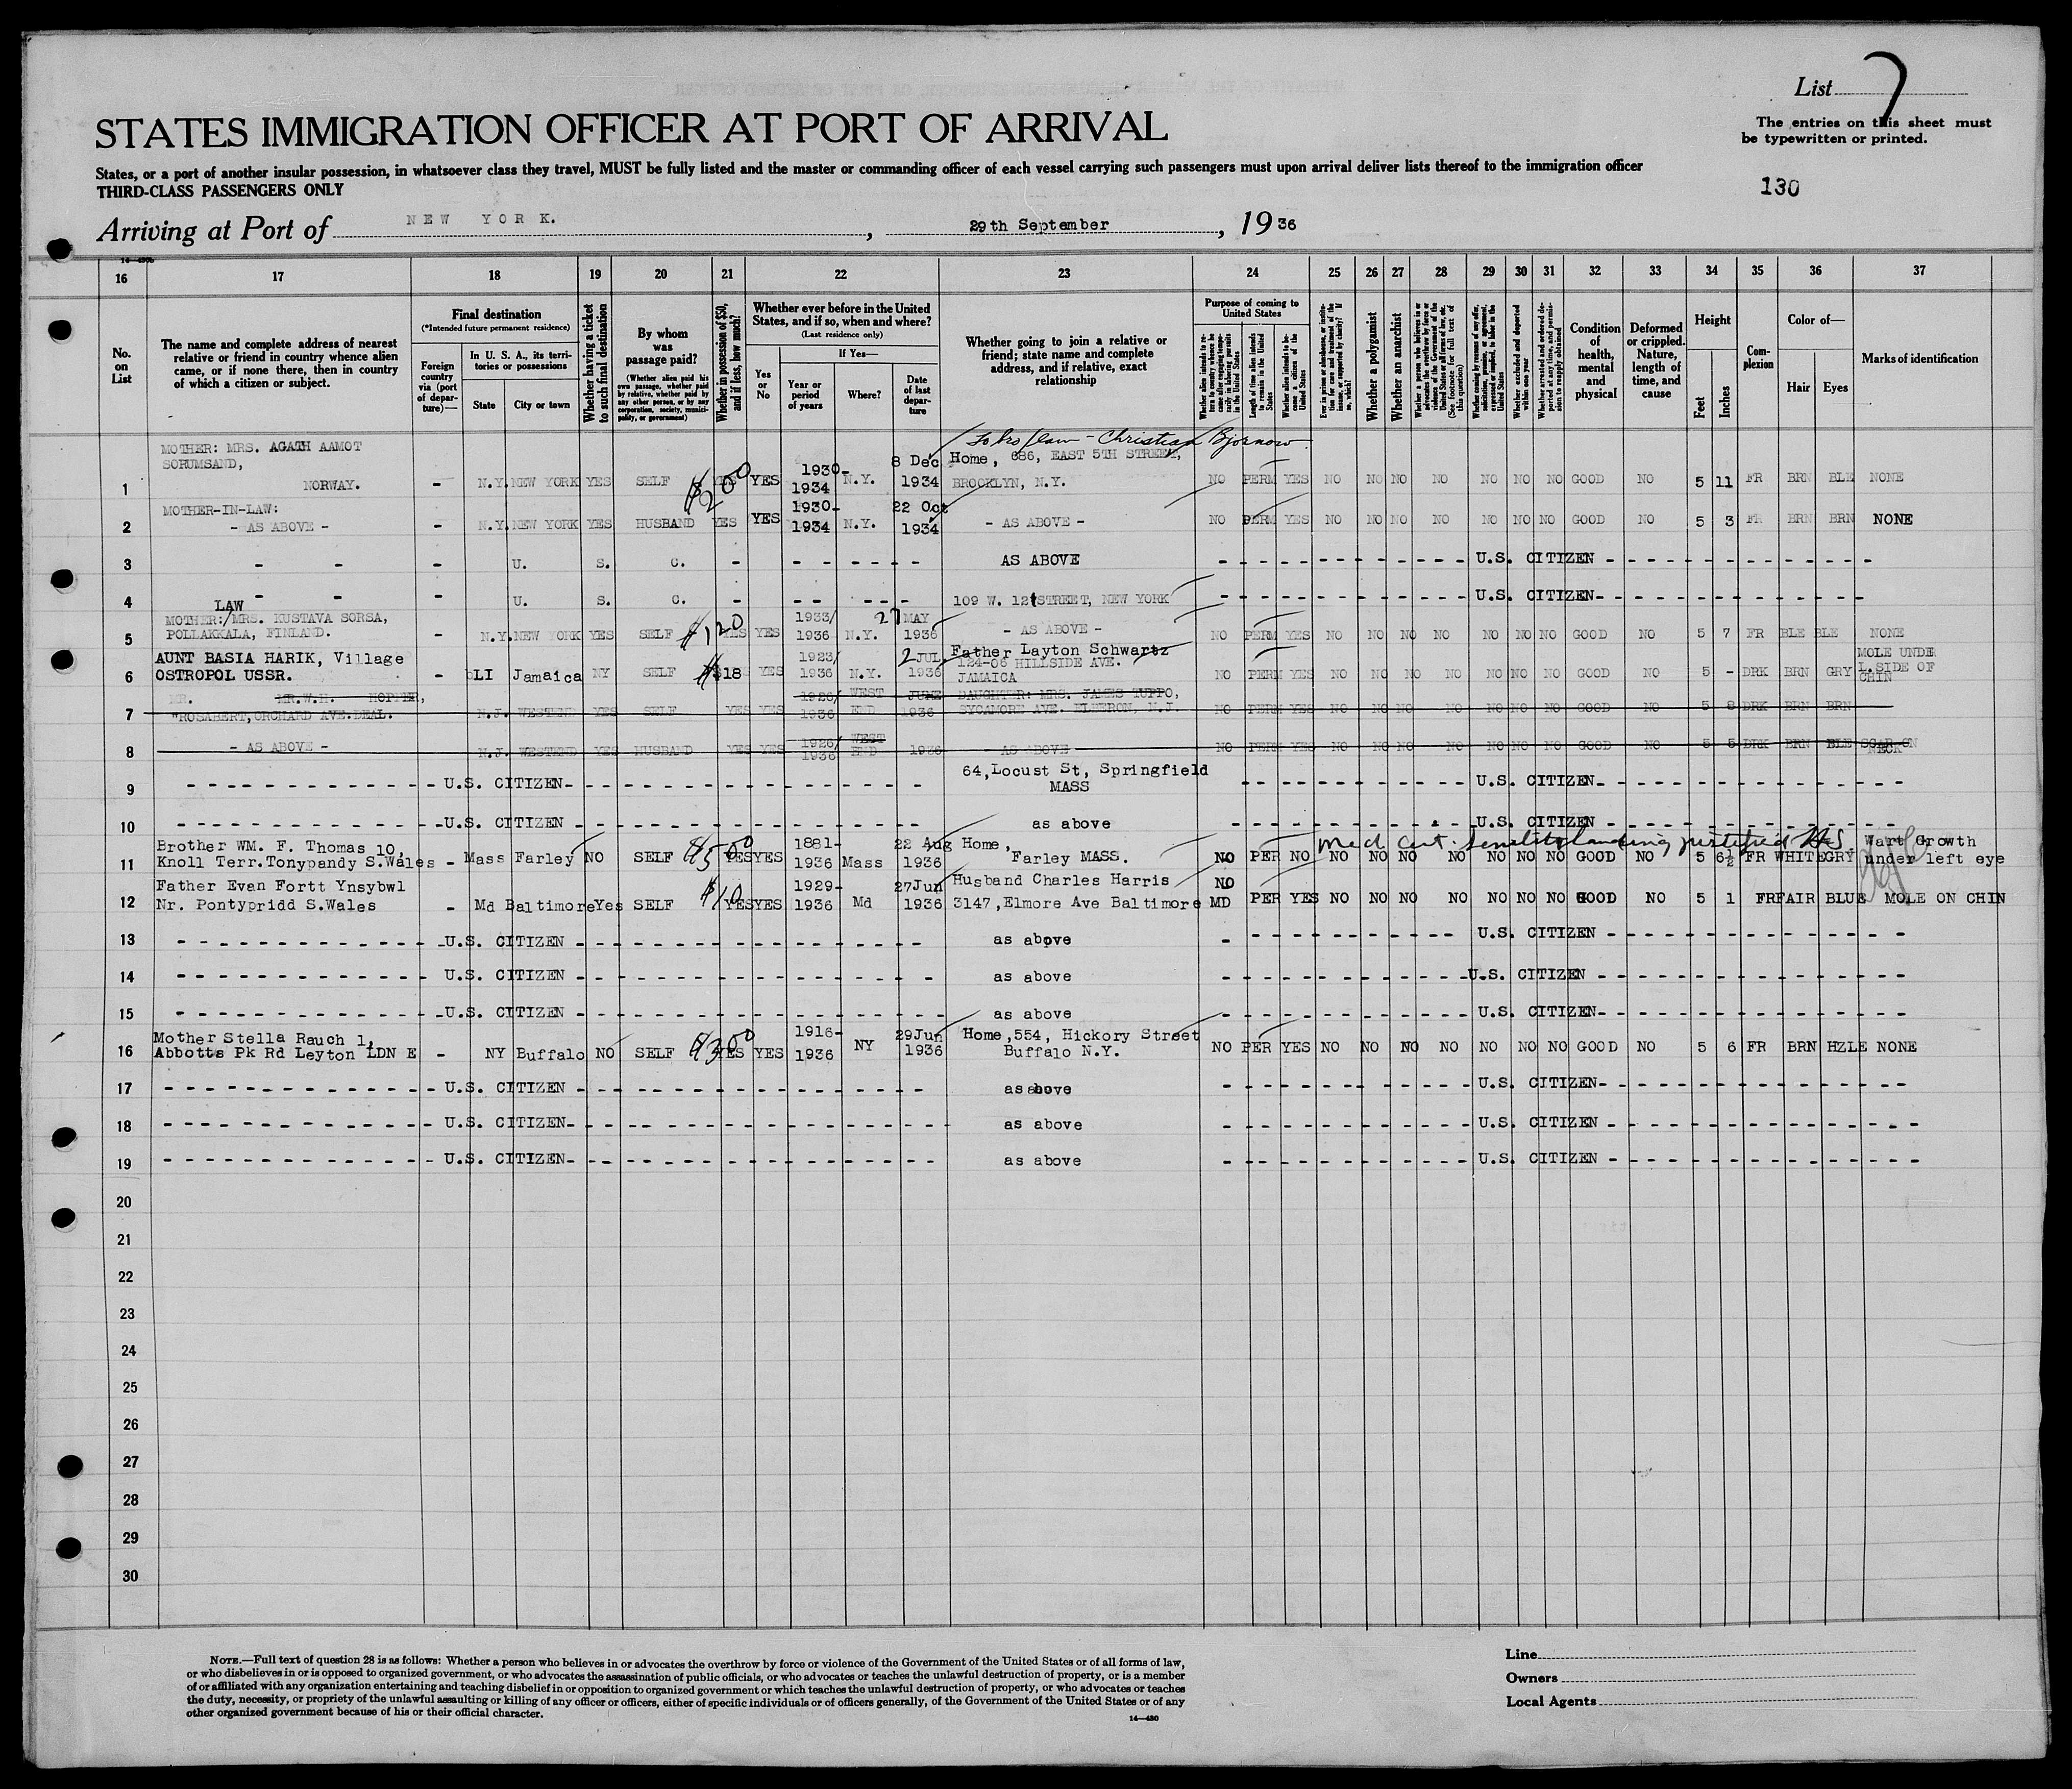 List 7
STATES IMMIGRATION OFFICER AT PORT OF ARRIVAL
The entries on this sheet must
be typewritten or printed.
States, or a port of another insular possession, in whatsoever class they travel, MUST be fully listed and the master or commanding officer of each vessel carrying such passengers must upon arrival deliver lists thereof to the immigration officer
THIRD-CLASS PASSENGERS ONLY
130
Arriving at Port of NEW YORK. , 29th September , 19 36
16 17 18 19 20 21 22 23 24 25 26 27 28 29 30 31 32 33 34 35 36 37
No. on List
The name and complete address of nearest relative or friend in country whence alien came, or if none there, then in country of which a citizen or subject.
Final destination
(*Intended future permanent residence)
Foreign country via (port of departure)—
In U. S. A., its territories or possessions
State
City or town
Whether having a ticket to such final destination
By whom was passage paid?
(Whether alien paid his own passage, whether paid by relative, whether paid by any other person, or by any corporation, society, municipality, or government)
Whether in possession of $50, and if less, how much?
Whether ever before in the United States, and if so, when and where?
(Last residence only)
Yes or No
If Yes—
Year or period of years
Where?
Date of last departure
Whether going to join a relative or friend; state name and complete address, and if relative, exact relationship
Purpose of coming to United States
Length of time alien intends to remain in the United States
Whether alien intends to become a citizen of the United States
Whether a polygamist
Whether an anarchist
Condition of health, mental and physical
Deformed or crippled. Nature, length of time, and cause
Height
Feet
Inches
Complexion
Color of—
Hair
Eyes
Marks of identification
To bro/law - Christian Bjornow
1 MOTHER: MRS. AGATH AAMOT SORUMSAND, NORWAY. - N.Y. NEW YORK YES SELF $200 YES YES 1930-1934 N.Y. 8 Dec 1934 Home, 686, EAST 5TH STREET, BROOKLYN, N.Y. NO PERM YES NO NO NO NO NO NO NO GOOD NO 5 11 FR BRN BLE NONE
2 MOTHER-IN-LAW: - AS ABOVE - - N.Y. NEW YORK YES HUSBAND YES YES 1930-1934 N.Y. 22 Oct 1934 - AS ABOVE - NO PERM YES NO NO NO NO NO NO NO GOOD NO 5 3 FR BRN BRN NONE
3 - - - U. S. C. - - - - - - AS ABOVE - - - U.S. CITIZEN - - -
4 - - - U. S. C. - - - - - 109 W. 12t STREET, NEW YORK - - - U.S. CITIZEN - - -
5 LAW MOTHER:/MRS. KUSTAVA SORSA, POLLAKKALA, FINLAND. - N.Y. NEW YORK YES SELF $120 YES YES 1933/1936 N.Y. 27 MAY 1936 - AS ABOVE - NO PERM YES NO NO NO NO NO NO NO GOOD NO 5 7 FR BLE BLE NONE
6 AUNT BASIA HARIK, Village OSTROPOL USSR. - LI Jamaica NY SELF $18 YES 1923/1936 N.Y. 2 JUL 1936 Father Layton Schwartz 124-06 HILLSIDE AVE. JAMAICA NO PERM YES NO NO NO NO NO NO NO GOOD NO 5 - DRK BRN GRY MOLE UNDE L.SIDE OF CHIN
7 MR. MR.W.H. HOPPER, "ROSABERT, ORCHARD AVE.DEAL. N.J. WESTEND YES SELF YES YES 1926/1936 WEST END JUNE 1936 DAUGHTER: MRS. JAMES TUPPO, SYCAMORE AVE. ELBERON, N.J. NO PERM YES NO NO NO NO NO NO NO GOOD NO 5 8 DRK BRN BRN
8 - AS ABOVE - N.J. WESTEND YES HUSBAND YES YES 1926/1936 WEST END 1936 AS ABOVE NO PERM YES NO NO NO NO NO NO NO GOOD NO 5 5 DRK BRN BLE SCAR ON NECK
9 - - - U.S. CITIZEN - - - 64,Locust St, Springfield MASS - - - U.S. CITIZEN - - -
10 - - - U.S. CITIZEN - - - as above - - - U.S. CITIZEN - - -
Med Cert. Senility landing justified
11 Brother WM. F. Thomas 10, Knoll Terr.Tonypandy S.Wales - Mass Farley NO SELF $500 YES YES 1881-1936 Mass 22 Aug 1936 Home, Farley MASS. NO PER NO NO NO NO NO NO NO NO GOOD NO 5 6½ FR WHITE GRY Wart Growth under left eye
12 Father Evan Fortt Ynsybwl Nr. Pontypridd S.Wales - Md Baltimore Yes SELF $10 YES YES 1929-1936 Md 27 Jun 1936 Husband Charles Harris 3147,Elmore Ave Baltimore MD NO PER YES NO NO NO NO NO NO NO GOOD NO 5 1 FR FAIR BLUE MOLE ON CHIN
13 - - - U.S. CITIZEN - - - as above - - - U.S. CITIZEN - - -
14 - - - U.S. CITIZEN - - - as above - - - U.S. CITIZEN - - -
15 - - - U.S. CITIZEN - - - as above - - - U.S. CITIZEN - - -
16 Mother Stella Rauch 1, Abbotts Pk Rd Leyton LDN E - NY Buffalo NO SELF $300 YES YES 1916-1936 NY 29Jun 1936 Home,554, Hickory Street Buffalo N.Y. NO PER YES NO NO NO NO NO NO NO GOOD NO 5 6 FR BRN HZLE NONE
17 - - - U.S. CITIZEN - - - as above - - - U.S. CITIZEN - - -
18 - - - U.S. CITIZEN - - - as above - - - U.S. CITIZEN - - -
19 - - - U.S. CITIZEN - - - as above - - - U.S. CITIZEN - - -
20
21
22
23
24
25
26
27
28
29
30
NOTE.—Full text of question 28 is as follows: Whether a person who believes in or advocates the overthrow by force or violence of the Government of the United States or of all forms of law,
or who disbelieves in or is opposed to organized government, or who advocates the assassination of public officials, or who advocates or teaches the unlawful destruction of property, or is a member
of or affiliated with any organization entertaining and teaching disbelief in or opposition to organized government or which teaches the unlawful destruction of property, or who advocates or teaches
the duty, necessity, or propriety of the unlawful assaulting or killing of any officer or officers, either of specific individuals or of officers generally, of the Government of the United States or of any
other organized government because of his or their official character.
14—430
Line
Owners
Local Agents